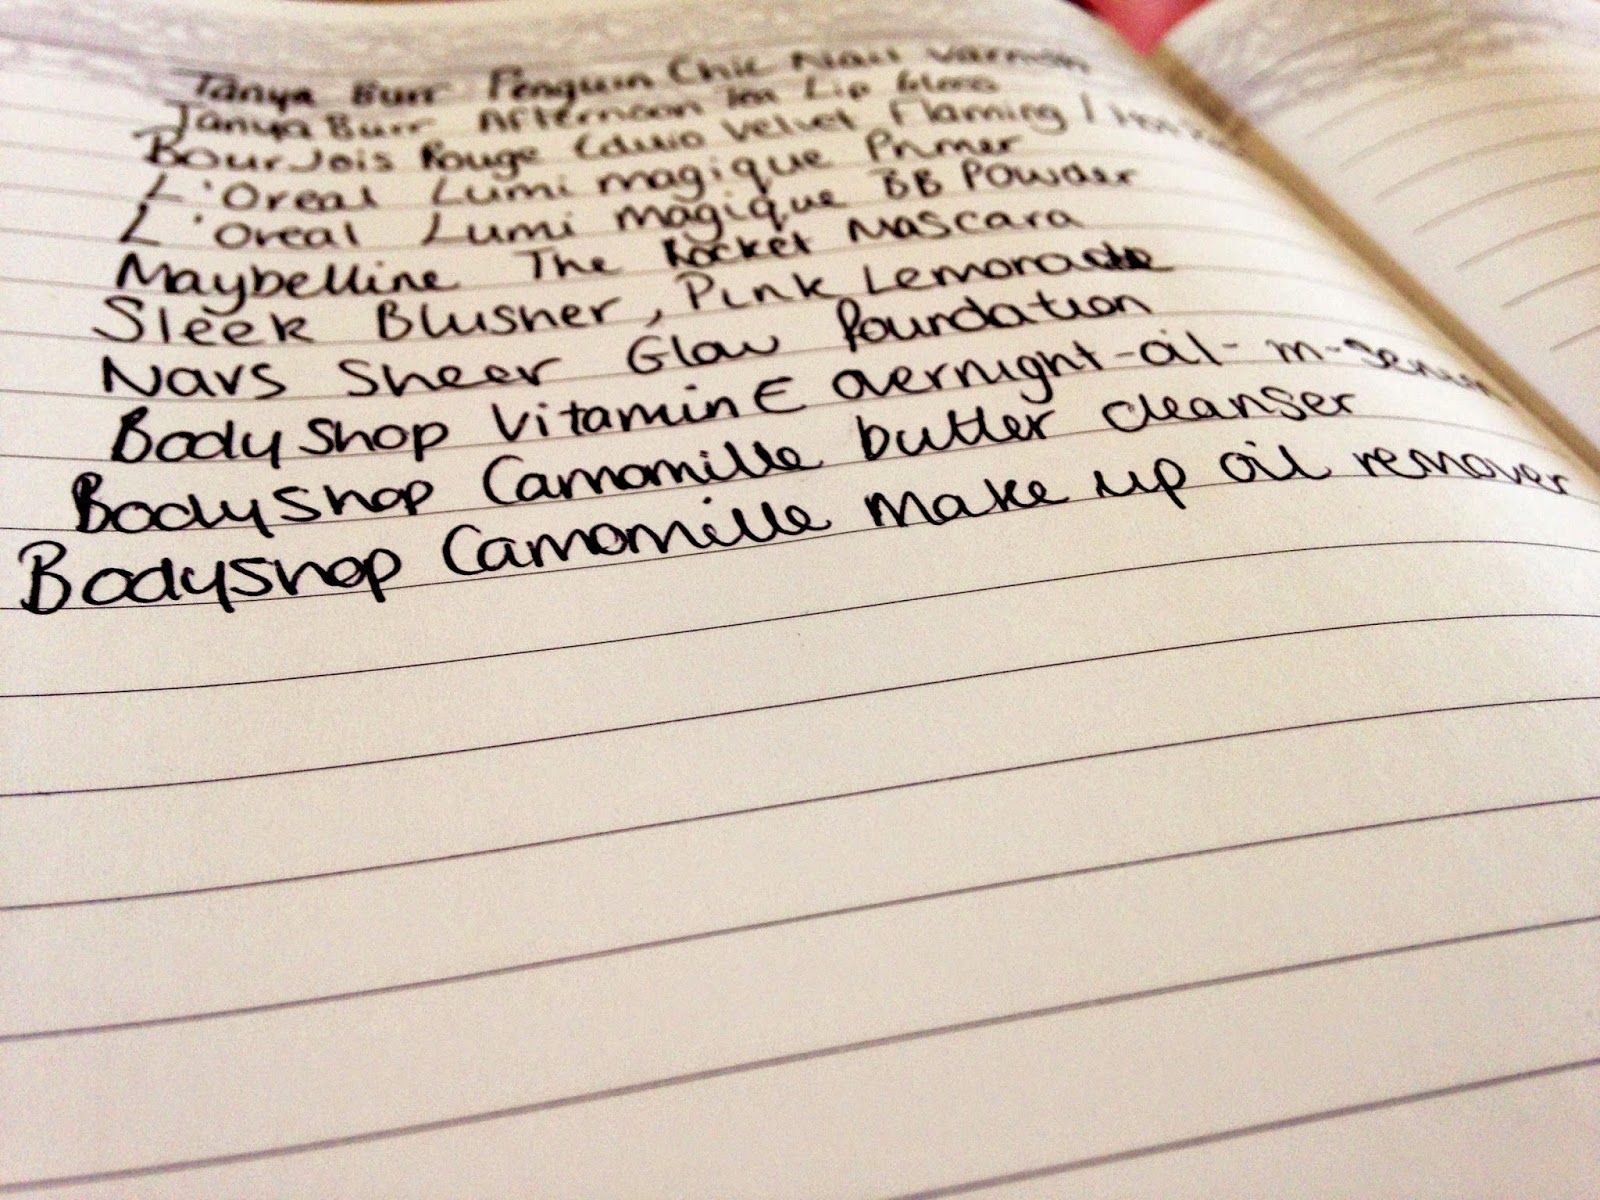 Tanya Burr Penguin Chic Nail Varnish
Tanya Burr Afternoon Tea Lip Gloss
Bourjois Rouge Edition Velvet Flaming /
L'Oreal Lumi magique Primer
L'Oreal Lumi magique BB Powder
Maybelline The Rocket Mascara
Sleek Blusher, Pink Lemonade
Nars Sheer Glow foundation
Body Shop Vitamin E overnight-oil-in-serum
Body Shop Camomille butter cleanser
Bodyshop Camomille make up oil remover